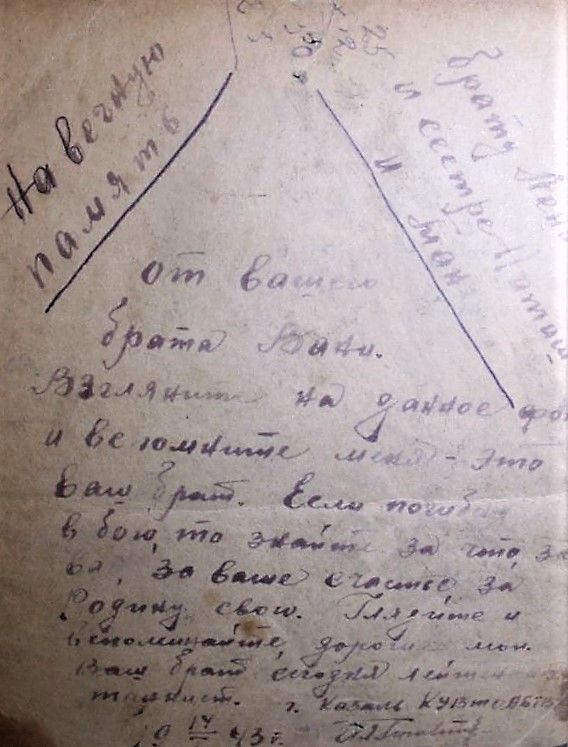 25
12
На вечную
память
брату
и сестре
и
от вашего
брата Вани.
Взгляните на данное фо
и вспомните меня - это
Ваш брат. Если погибну
в бою, то знайте за что, за
за ваше счастье, за
Родину свою. Глядите и
вспоминайте, дорогие мои.
Ваш брат сегодня лейтен
танкист. г. Казань КУВТС АБТВ
14 43 г.